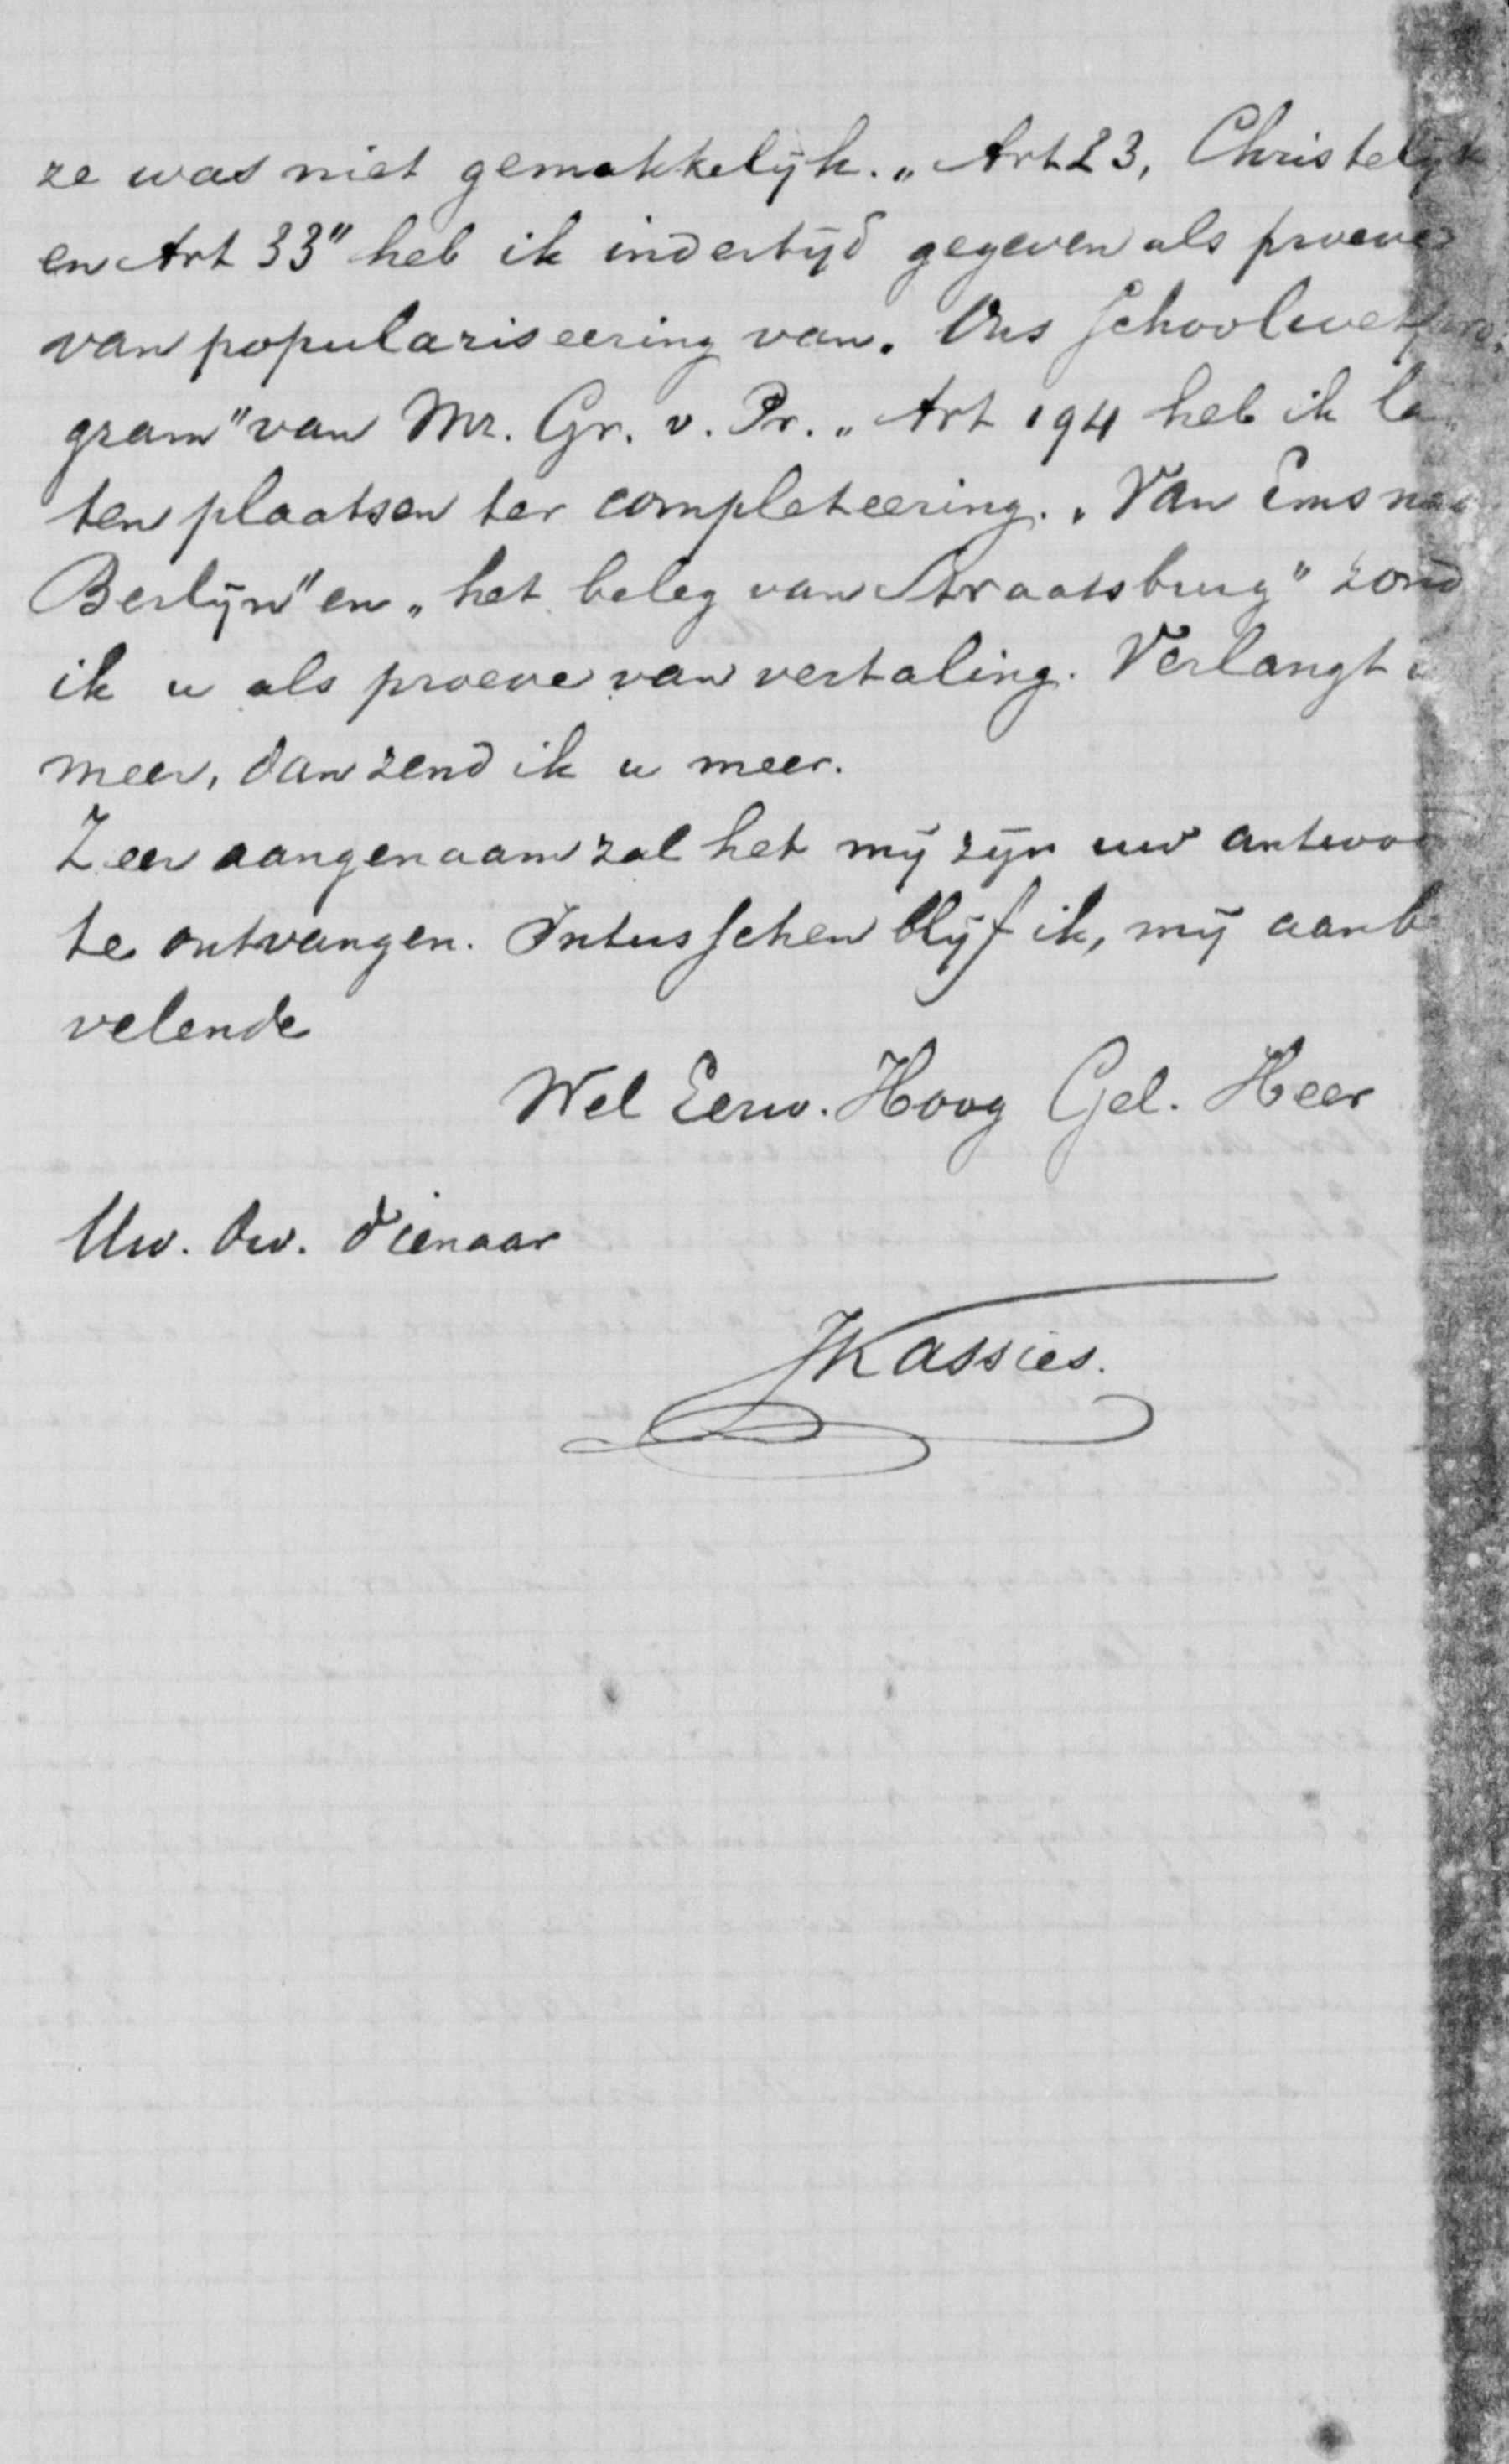 ze was niet gemakkelijk. „Art 23, Christelijk
en Art 33" heb ik indertijd gegeven als proeve
van populariseering van „Ons Schoolwetpro-
gram" van Mr. Gr. v. Pr. „Art 194 heb ik la-
ten plaatsen ter completeering. „Van Ems naar
Berlijn" en „het beleg van Straatsburg" zond
ik u als proeve van vertaling. Verlangt u
meer, dan zend ik u meer.
Zeer aangenaam zal het mij zijn uw antwoo
te ontvangen. Intusschen blijf ik, mij aanb
velende
Wel Eerw. Hoog Gel. Heer
Uw. Dw. dienaar
JKassies.